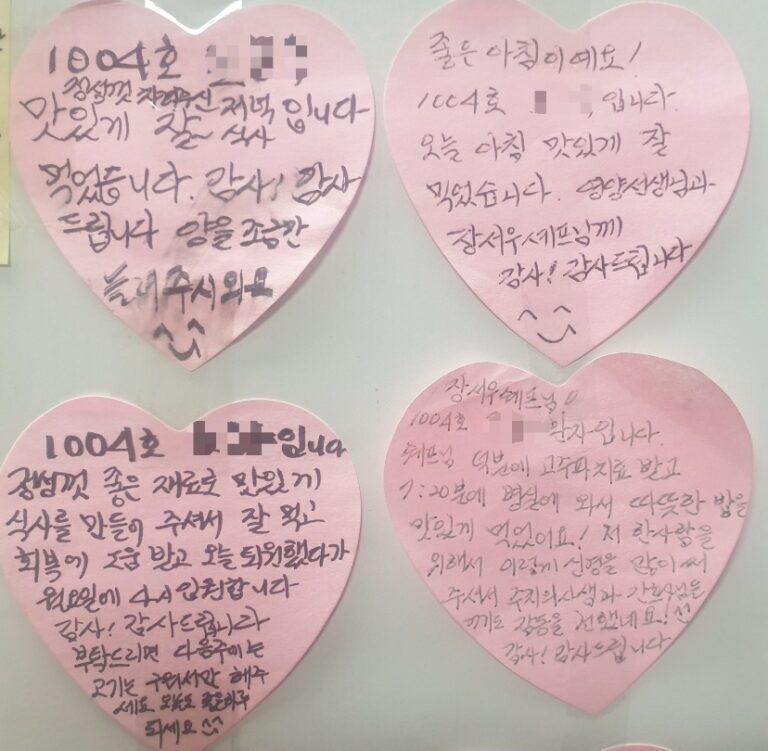 1004호
정성껏 차려주신
맛있게 잘~ 저녁 식사 입니다
먹었습니다. 감사! 감사
드립니다 양을 조금만
늘려주시와요
좋은 아침이예요!
1004호 입니다.
오늘 아침 맛있게 잘
먹었습니다. 영양선생님과
장서우셰프님께
감사! 감사드립니다
1004호 입니다
정성껏 좋은 재료로 맛있게
식사를 만들어 주셔서 잘 먹고
회복에 도움 받고 오늘 퇴원했다가
월요일에 입원합니다
감사! 감사드립니다
부탁드리면 다음주에는
고기는 구워서만 해주
세요 오늘도 좋은하루
되세요
장서우셰프님♡
1004호 환자입니다.
셰프님 덕분에 고주파치료 받고
7:20분에 병실에 와서 따뜻한 밥을
맛있게 먹었어요! 저 한사람을
위해서 이렇게 신경을 많이 써
주셔서 주치의사샘과 간호사님들
께도 감동을 전했네요!
감사! 감사드립니다